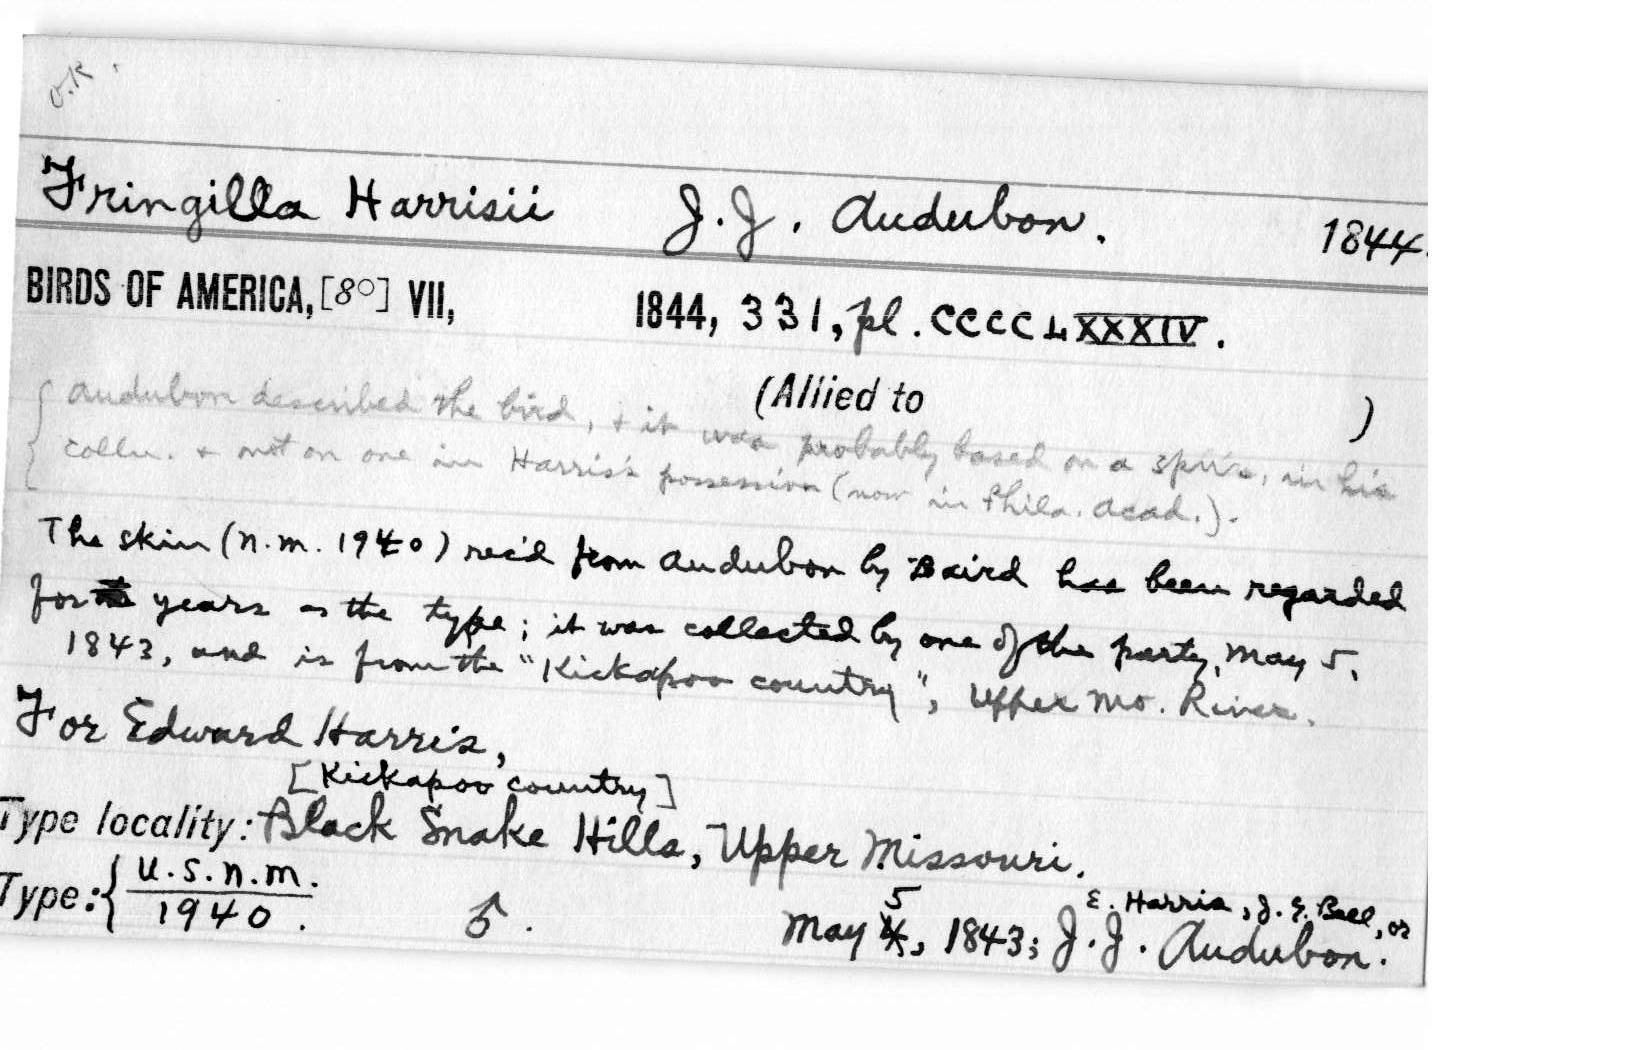 O.K.
Fringilla Harrisii J. J. Audubon. 1844.
BIRDS OF AMERICA, [8°] VII, 1844, 331, pl. CCCCLXXXIV.
(Allied to )
Audubon described the bird, & it was probably based on a spec., in his
colln. & not on one in Harris's possession (now in Phila. Acad.).
The skin (N.M. 1940) rec'd from Audubon by Baird has been regarded
for years as the type; it was collected by one of the party, May 5,
1843, and is from the "Kickapoo country", Upper Mo. River.
For Edward Harris,
[Kickapoo country]
Type locality: Black Snake Hills, Upper Missouri.
Type: { U.S.N.M. 5 E. Harris, J. G. Bell, or
1940. ♂. May 4, 1843; J. J. Audubon.